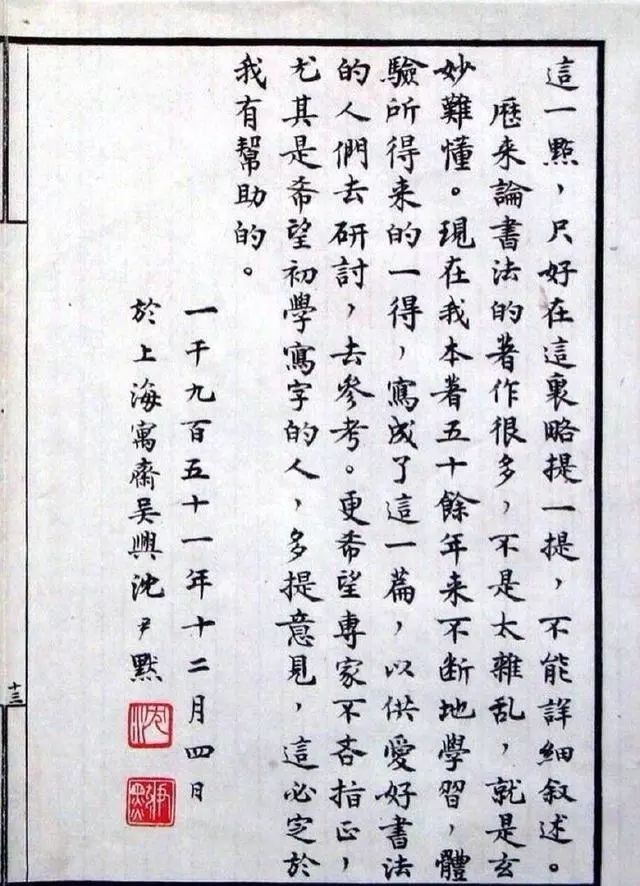 這一點，只好在這裏略提一提，不能詳細叙述。
厯来論書法的著作很多，不是太雜乱，就是玄
妙難懂。現在我本著五十餘年来不断地學習，體
驗所得来的一得，寫成了這一篇，以供愛好書法
的人們去研討，去參考。更希望專家不吝指正，
尤其是希望初學寫字的人，多提意見，這必定於
我有幫助的。
一千九百五十一年十二月四日
於上海寓齋吳興沈尹默
沈
十三